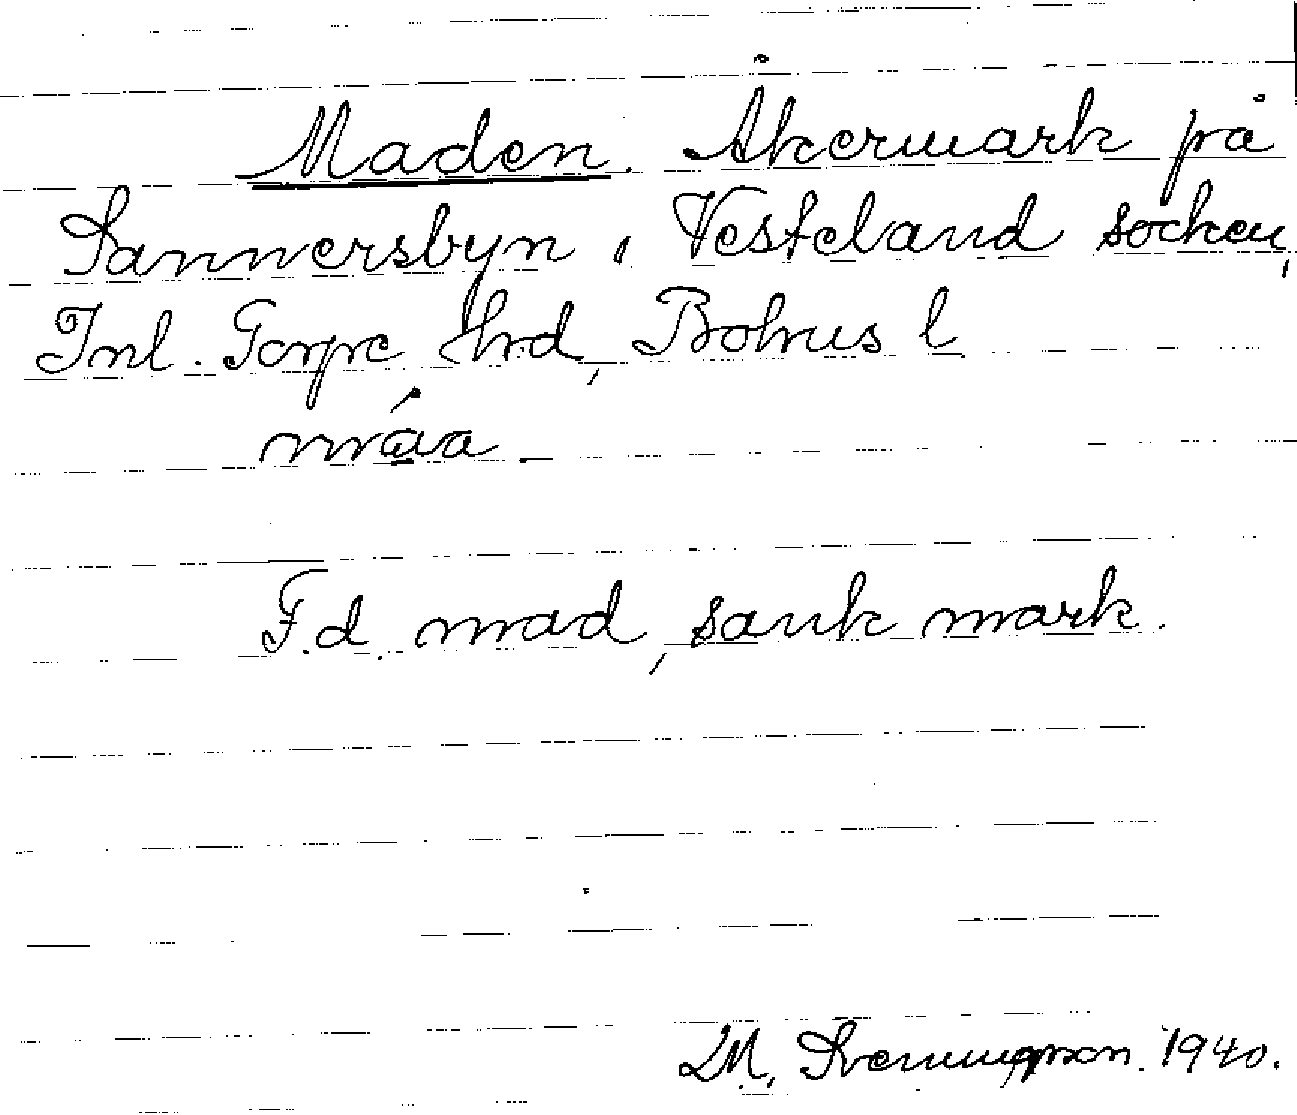 Maden. Åkermark på
Sannersbyn i Vesteland socken,
Inl. Torpe hrd, Bohus l
måa
F.d. mad, sank mark.
M. Svenungsson. 1940.